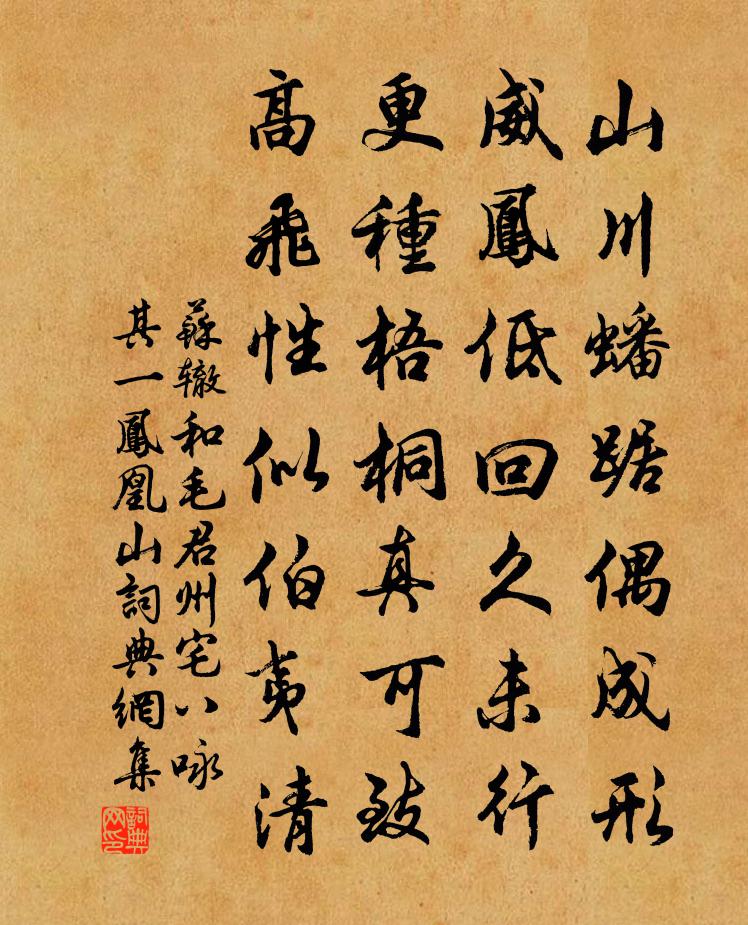 山川蟠踞偶成形
威鳳低回久未行
更種梧桐真可致
高飛性似伯夷清
蘇轍和毛君州宅八咏
其一鳳凰山詞典網集
詞典网印